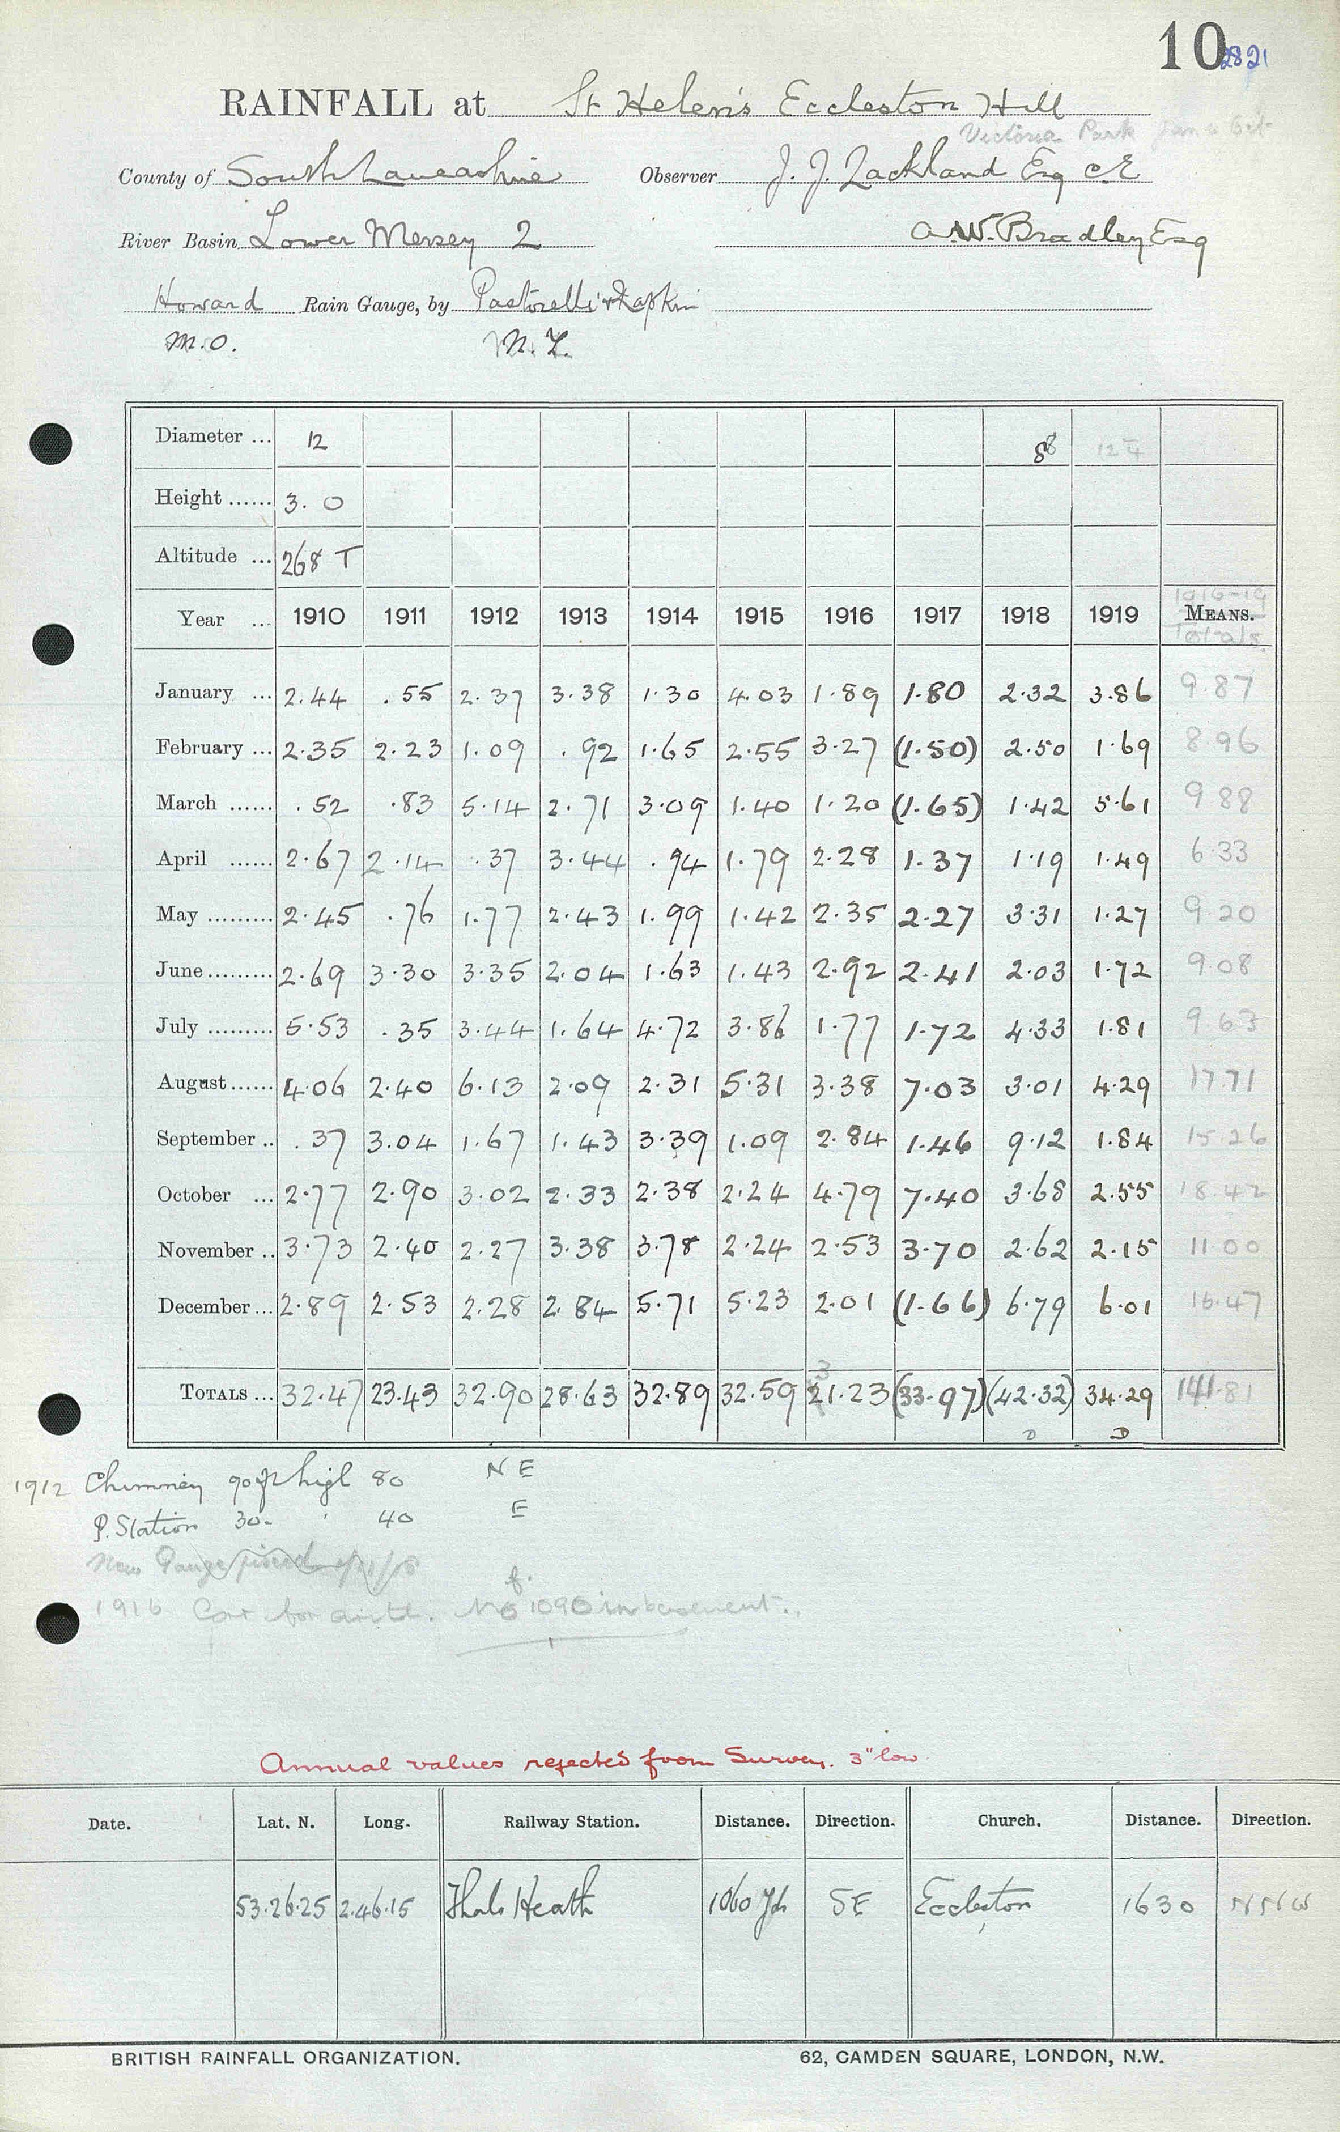 10 2821
RAINFALL at St Helen's Eccleston Hill
Victoria Park
County of South Lancashire Observer J. J. Lackland Esq C.E
River Basin Lower Mersey 2 A.W. Bradley Esq
Howard Rain Gauge, by Pastorelli & Rapkin
M.O. N. Z.
Diameter ... 12 8 12
Height ...... 3. 0
Altitude ... 268 T
1916-19
Year ... 1910 1911 1912 1913 1914 1915 1916 1917 1918 1919 MEANS.
Totals.
January ... 2.44 .55 2.37 3.38 1.30 4.03 1.89 1.80 2.32 3.86 9.87
February ... 2.35 2.23 1.09 .92 1.65 2.55 3.27 (1.50) 2.50 1.69 8.96
March ...... .52 .83 5.14 2.71 3.09 1.40 1.20 (1.65) 1.42 5.61 9.88
April ...... 2.67 2.14 .37 3.44 .94 1.79 2.28 1.37 1.19 1.49 6.33
May ......... 2.45 .76 1.77 2.43 1.99 1.42 2.35 2.27 3.31 1.27 9.20
June ......... 2.69 3.30 3.35 2.04 1.63 1.43 2.92 2.41 2.03 1.72 9.08
July ......... 5.53 .35 3.44 1.64 4.72 3.86 1.77 1.72 4.33 1.81 9.63
August ...... 4.06 2.40 6.13 2.09 2.31 5.31 3.38 7.03 3.01 4.29 17.71
September .. .37 3.04 1.67 1.43 3.39 1.09 2.84 1.46 9.12 1.84 15.26
October ... 2.77 2.90 3.02 2.33 2.38 2.24 4.79 7.40 3.68 2.55 18.42
November .. 3.73 2.40 2.27 3.38 3.78 2.24 2.53 3.70 2.62 2.15 11.00
December ... 2.89 2.53 2.28 2.84 5.71 5.23 2.01 (1.66) 6.79 6.01 16.47
3
TOTALS ... 32.47 23.43 32.90 28.63 32.89 32.59 21.23 (33.97) (42.32) 34.29 141.81
D D
1912 Chimney 90 ft high 80 N E
P. Station 30 " 40 E
New Gauge
1916 No 1090 in basement.
Annual values rejected from Survey. 3" low.
Date. Lat. N. Long. Railway Station. Distance. Direction. Church. Distance. Direction.
53.26.25 2.46.15 Heath 1060 Yds SE Eccleston 1630 NNW
BRITISH RAINFALL ORGANIZATION. 62, CAMDEN SQUARE, LONDON, N.W.